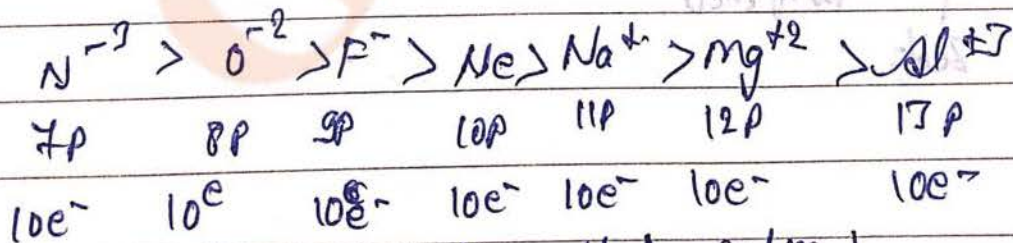 N⁻³ > O⁻² > F⁻ > Ne > Na⁺ > Mg⁺² > Al⁺³
7p 8p 9p 10p 11p 12p 13p
10e⁻ 10e 10e⁻ 10e⁻ 10e⁻ 10e⁻ 10e⁻